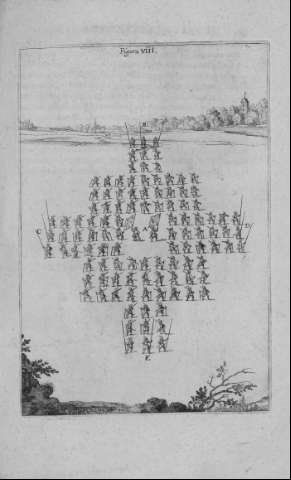 Figura VIII.
B
A
C
D
E